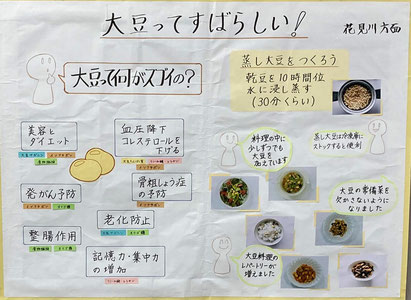 大豆ってすばらしい!
花見川方面
大豆って何がスゴイの?
美容と
ダイエット
血圧降下
コレステロールを
下げる
発がん予防
骨粗しょう症
の予防
老化防止
整腸作用
記憶力・集中力
の増加
蒸し大豆をつくろう
乾豆を10時間位
水に浸し蒸す
(30分くらい)
料理の中に
少しずつでも
大豆を
加えています
蒸し大豆は冷凍庫に
ストックすると便利
大豆の常備菜を
欠かさないように
なりました
大豆料理の
レパートリーが
増えました